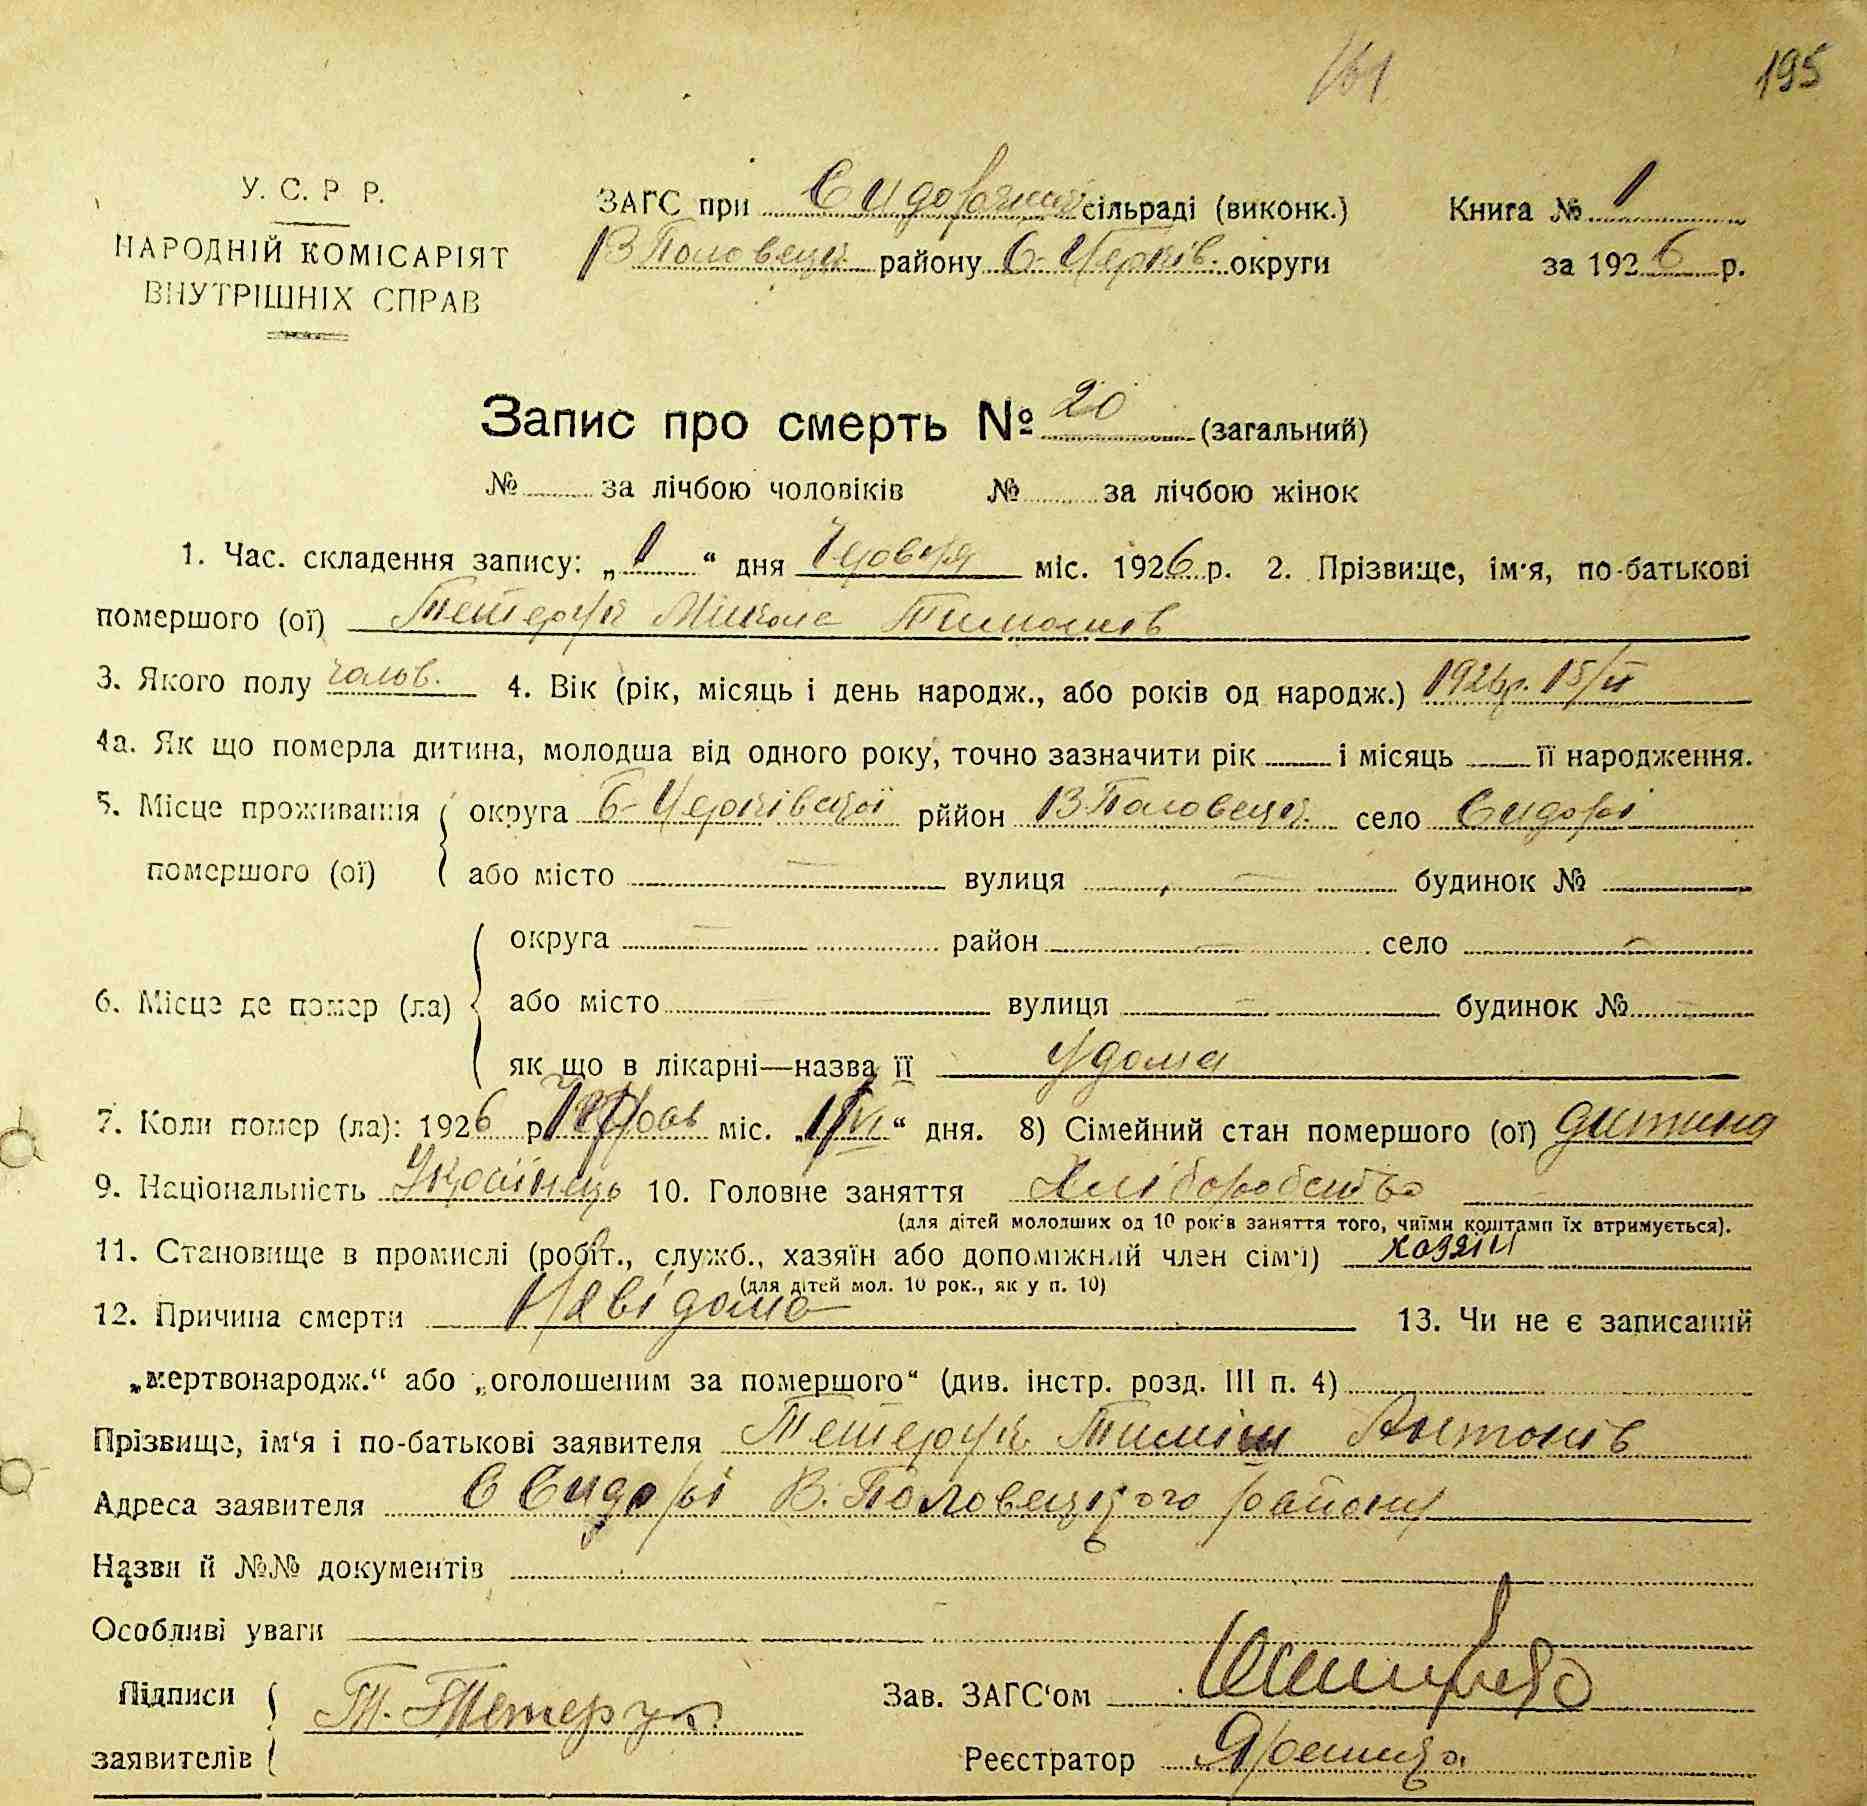 161
195
У. С. Р. Р.
НАРОДНІЙ КОМІСАРІЯТ
ВНУТРІШНІХ СПРАВ
ЗАГС при сільраді (виконк.)
В Половецьк. району Б-Церків. округи
Книга № 1
за 1926 р.
Запис про смерть № 20 (загальний)
№ за лічбою чоловіків № за лічбою жінок
1. Час. складення запису: „1“ дня Червця міс. 1926 р. 2. Прізвище, ім'я, по-батькові
помершого (ої) Тетерук Микола Тимошів
3. Якого полу чолов. 4. Вік (рік, місяць і день народж., або років од народж.) 1926р. 15/II
4а. Як що померла дитина, молодша від одного року, точно зазначити рік і місяць її народження.
5. Місце проживання помершого (ої)
округа Б-Церківської рййон В Половецьк. село Сидорі
або місто — вулиця — будинок №
6. Місце де помер (ла)
округа — район — село —
або місто — вулиця — будинок № —
як що в лікарні—назва її Удома
7. Коли помер (ла): 1926 р. міс. „1/VI“ дня. 8) Сімейний стан помершого (ої) дитина
9. Національність Українець 10. Головне заняття Хліборобство
(для дітей молодших од 10 років заняття того, чиїми коштами їх втримується).
11. Становище в промислі (робіт., служб., хазяїн або допоміжний член сім'ї) хазяїн
(для дітей мол. 10 рок., як у п. 10)
12. Причина смерти Невідома 13. Чи не є записаний
„мертвонародж.“ або „оголошеним за помершого“ (див. інстр. розд. III п. 4)
Прізвище, ім'я і по-батькові заявителя Тетерук Тиміш Антонів
Адреса заявителя С Сидорі В. Половецького району
Назви й №№ документів
Особливі уваги
Підписи заявителів Т. Тетерук
Зав. ЗАГС'ом
Реєстратор